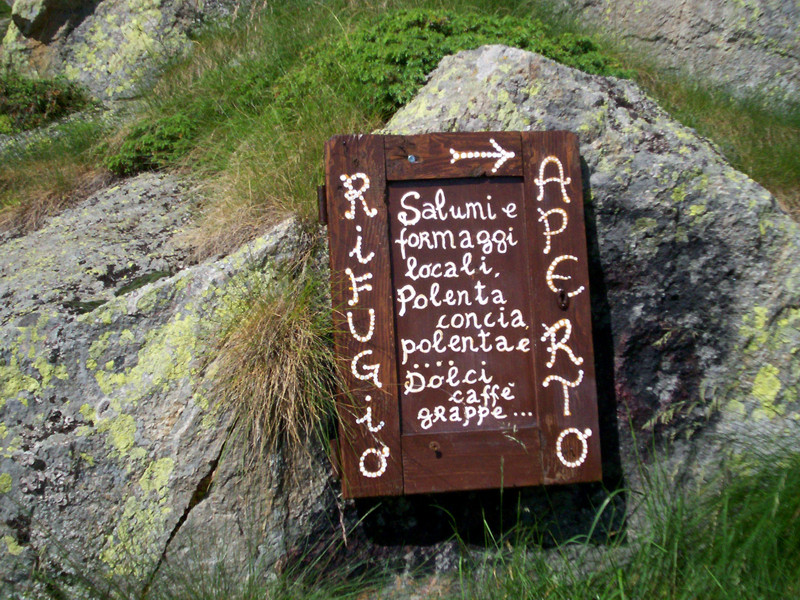 RiFUGiO
Salumi e
formaggi
locali,
Polenta
concia,
polenta e
.....
Dolci
caffè
grappe...
APERTO